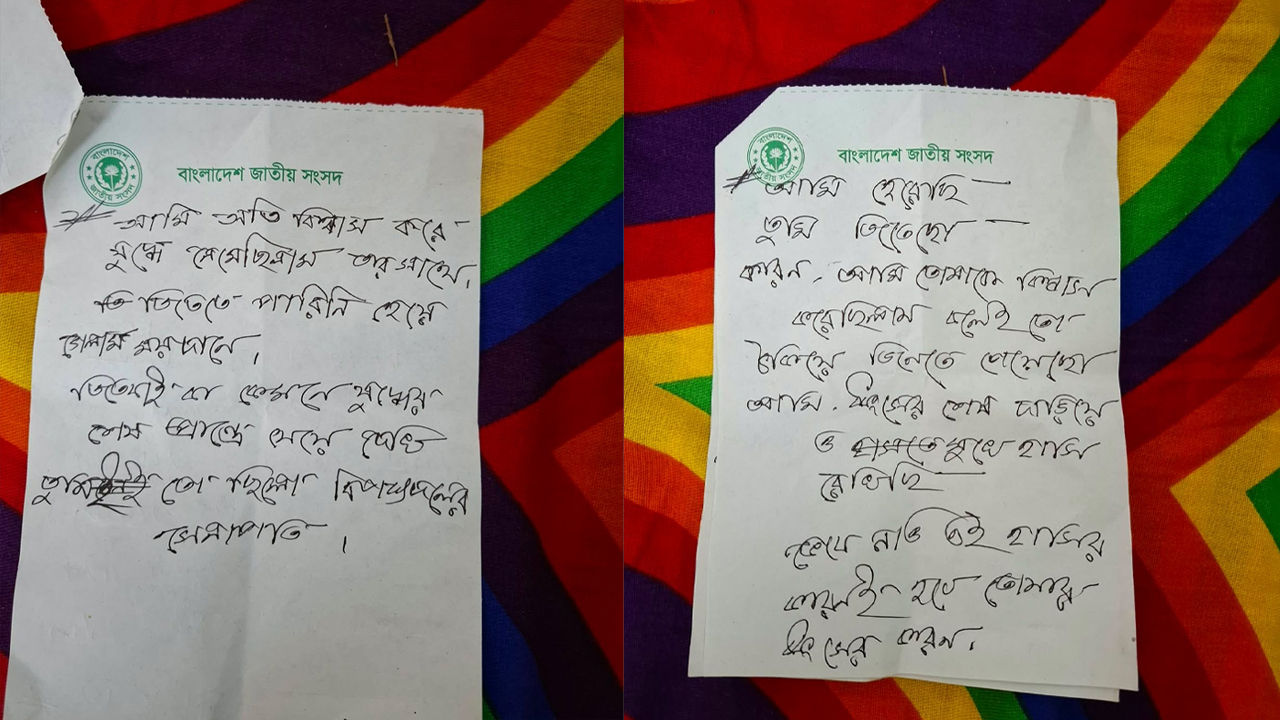 বাংলাদেশ
জাতীয় সংসদ
বাংলাদেশ জাতীয় সংসদ
আমি অতি বিশ্বাস করে
যুদ্ধে নেমেছিলাম তার সাথে,
জিতেতে পারিনি হেরে
গেলাম ময়দানে,
জিতবোই বা কেমনে যুদ্ধের
শেষ প্রান্তে যেয়ে দেখি
তুমিই তো ছিলো বিপক্ষদলের
সেনাপতি,
বাংলাদেশ
জাতীয় সংসদ
বাংলাদেশ জাতীয় সংসদ
আমি হেরেছি
তুমি জিতেছো
কারন, আমি তোমাকে বিশ্বাস
করেছিলাম বলেই তো
ঠকিয়ে জিনেতে পেরেছো
আমি, ধ্বংসের শেষ দাড়িয়ে
ও মুখে হাসি
রেখেছি
জেনে নাও এই হাসির
কারনই হবে তোমার
ধ্বংসের কারন,